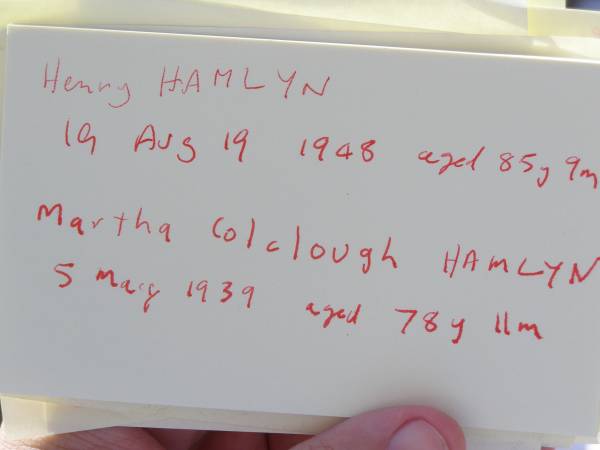 Henry HAMLYN
19 Aug 19 1948 aged 85y 9m
Martha Colclough HAMLYN
5 May 1939 aged 78y 11m